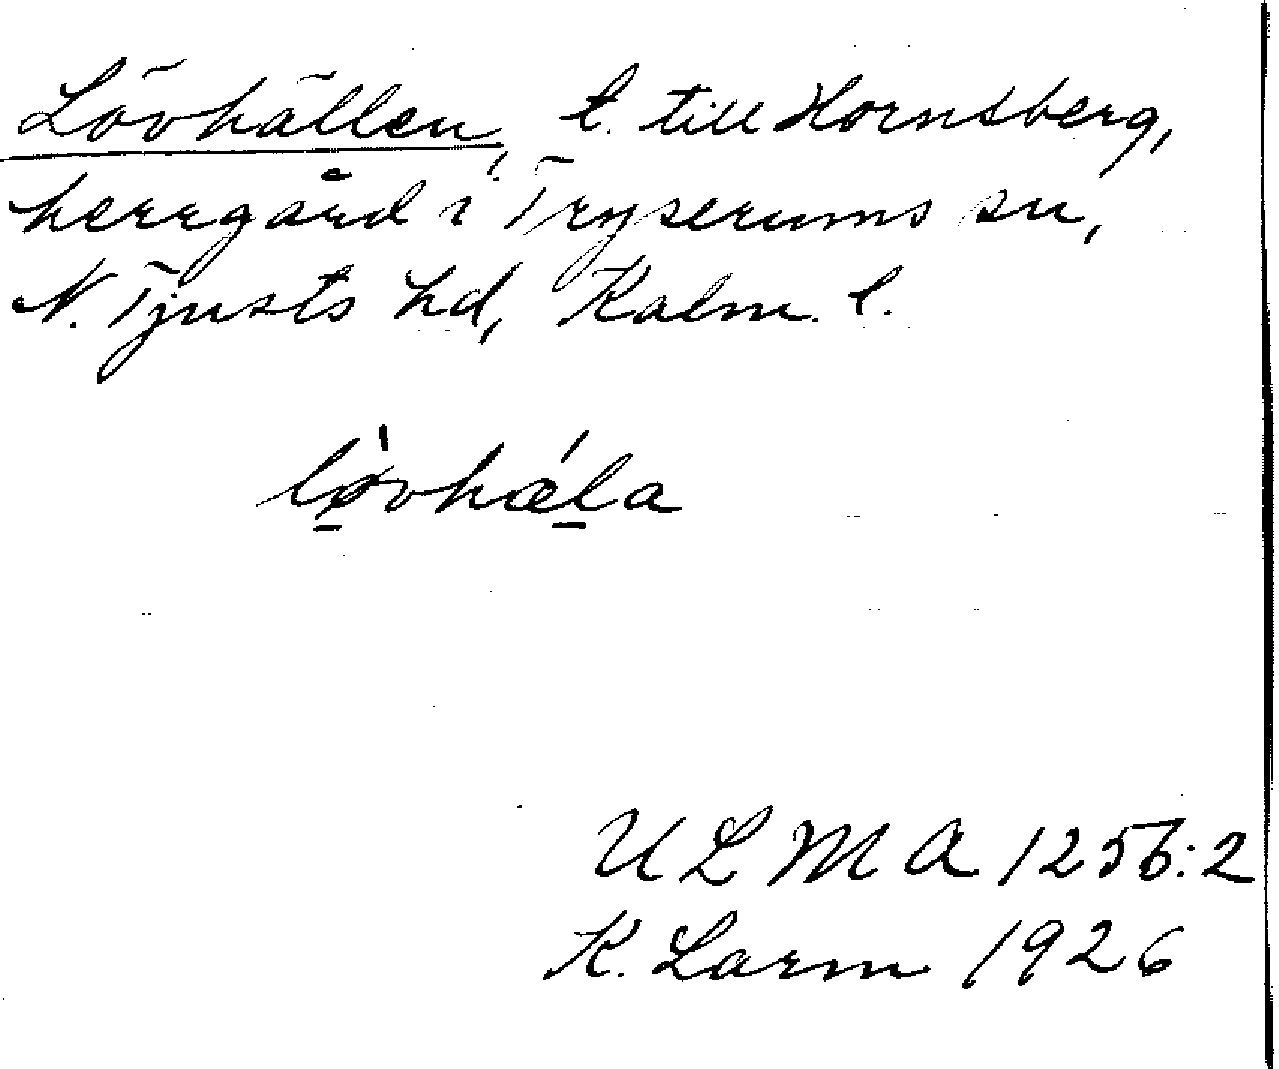 Lövhällen, t. till Hornsberg,
herrgård i Tryserums sn,
N. Tjusts hd, Kalm. l.
lø̀vhǽla
ULMA 1256:2
K. Larm 1926